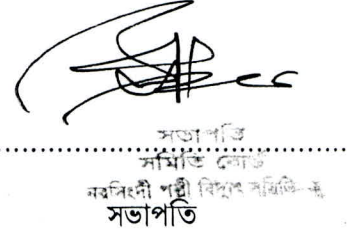 সভাপতি
সমিতি বোর্ড
নরসিংদী পল্লী বিদ্যুৎ সমিতি-
সভাপতি